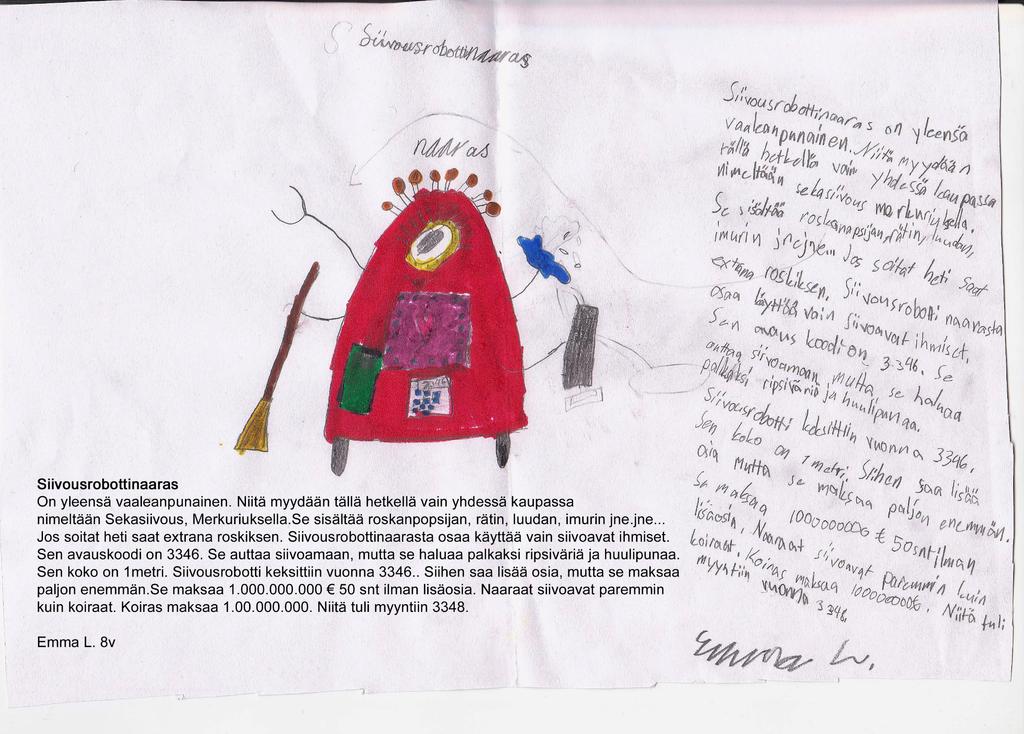 S Siivousrobottinaaras
naaras
3346
Siivousrobottinaaras on yleensä
vaaleanpunainen. Niitä myydään
tällä hetkellä vain yhdessä kaupassa
nimeltään sekasiivous merkuriuksella.
Se sisältää roskanapsijan, rätin, luudan,
imurin jnejne... Jos soitat heti saat
extrana roskiksen. Siivousrobotti naarasta
osaa käyttää vain siivoavat ihmiset.
Sen avaus koodi on 3346. Se
auttaa siivoamaan, mutta se haluaa
palkaksi ripsiväriä ja huulipunaa.
Siivousrobotti keksittiin vuonna 3346.
Sen koko on 1 metri. Siihen saa lisää
osia mutta se maksaa paljon enemmän.
Se maksaa 1000000000 € 50 snt ilman
lisäosia. Naaraat siivoavat paremmin kuin
koiraat. Koiras maksaa 100000000€. Niitä tuli
myyntiin vuonna 3348.
Emma L.
Siivousrobottinaaras
On yleensä vaaleanpunainen. Niitä myydään tällä hetkellä vain yhdessä kaupassa
nimeltään Sekasiivous, Merkuriuksella.Se sisältää roskanpopsijan, rätin, luudan, imurin jne.jne...
Jos soitat heti saat extrana roskiksen. Siivousrobottinaarasta osaa käyttää vain siivoavat ihmiset.
Sen avauskoodi on 3346. Se auttaa siivoamaan, mutta se haluaa palkaksi ripsiväriä ja huulipunaa.
Sen koko on 1metri. Siivousrobotti keksittiin vuonna 3346.. Siihen saa lisää osia, mutta se maksaa
paljon enemmän.Se maksaa 1.000.000.000 € 50 snt ilman lisäosia. Naaraat siivoavat paremmin
kuin koiraat. Koiras maksaa 1.00.000.000. Niitä tuli myyntiin 3348.
Emma L. 8v